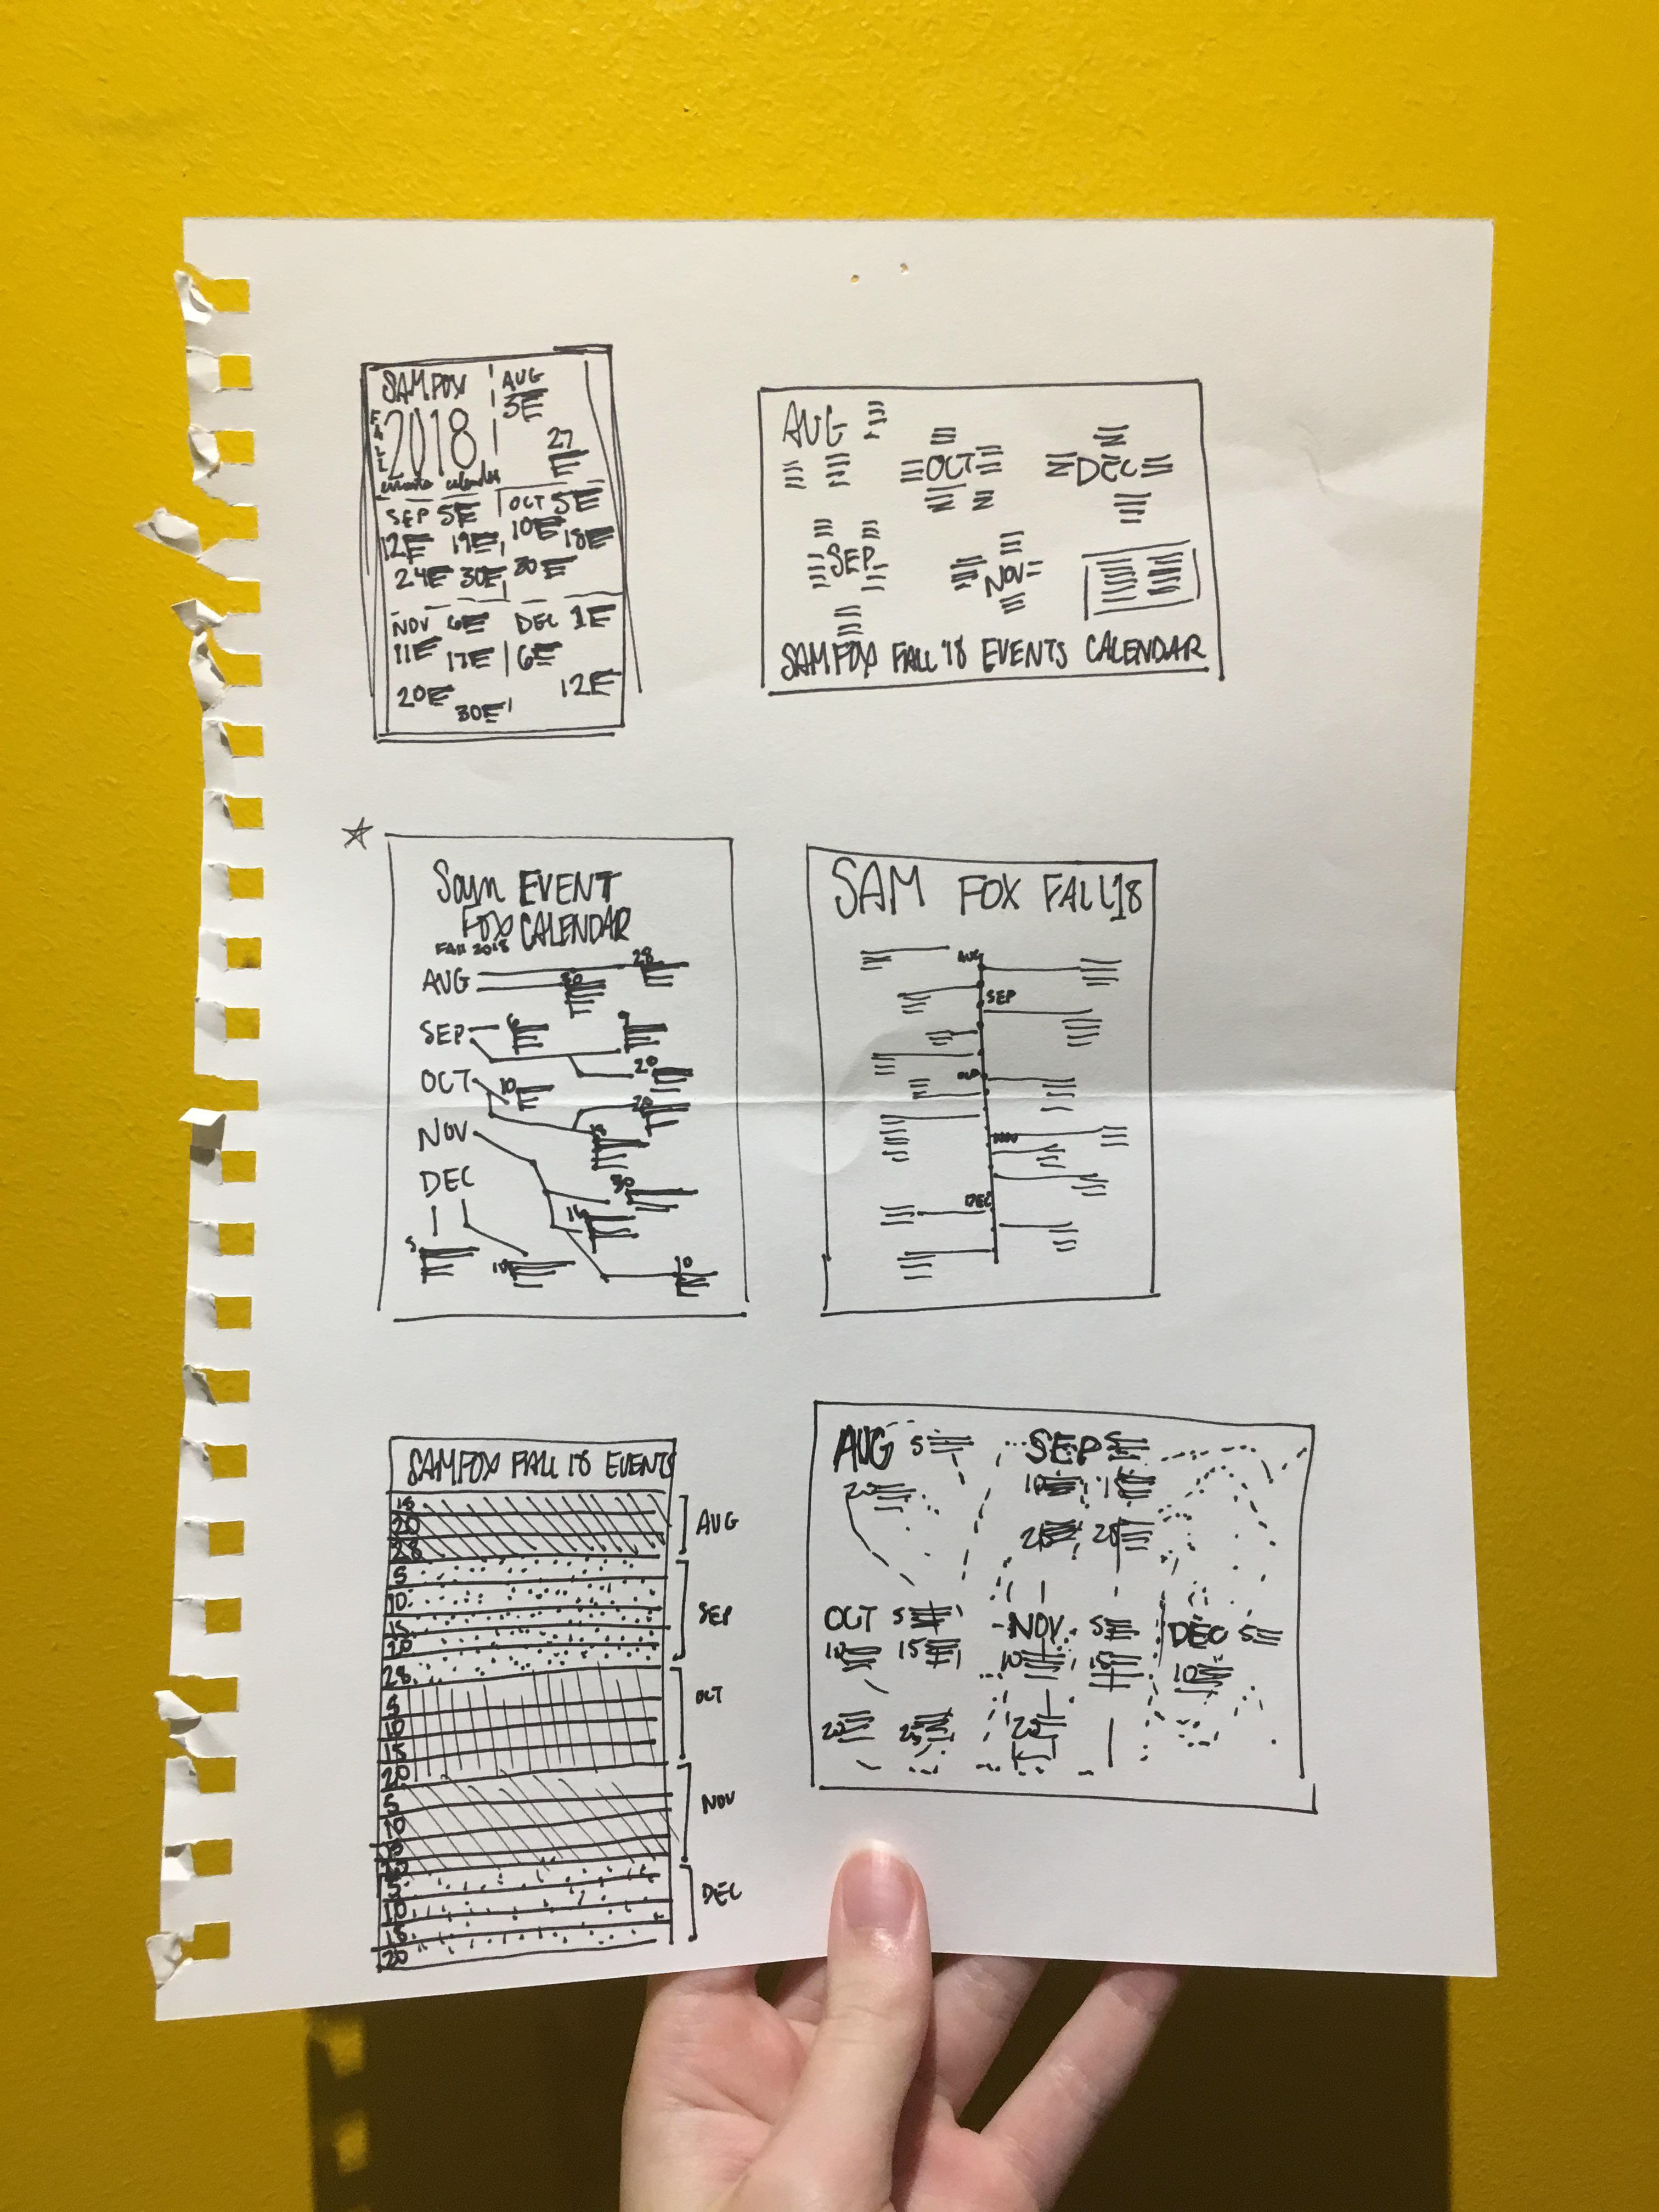 SAM FOX
FALL
2018
events calendar
AUG
5
27
SEP 5
12 19
24 30
OCT 5
10 18
30
NOV 6
11 17
20
30
DEC 1
6
12
AUG
OCT
DEC
SEP
NOV
SAM FOX FALL '18 EVENTS CALENDAR
Sam EVENT
Fox CALENDAR
FALL 2018
AUG
28
SEP
20
OCT 10
20
NOV
DEC
30
5
10
SAM FOX FALL 18
AUG
SEP
NOV
DEC
SAM FOX FALL 18 EVENTS
15
20
28
AUG
5
10
15
20
SEP
28
5
10
15
OCT
20
5
NOV
5
10
15
20
DEC
AUG 5
20
SEP 5
10 15
20
OCT 5
10 15
20 25
NOV 5
10 15
20
DEC 5
10